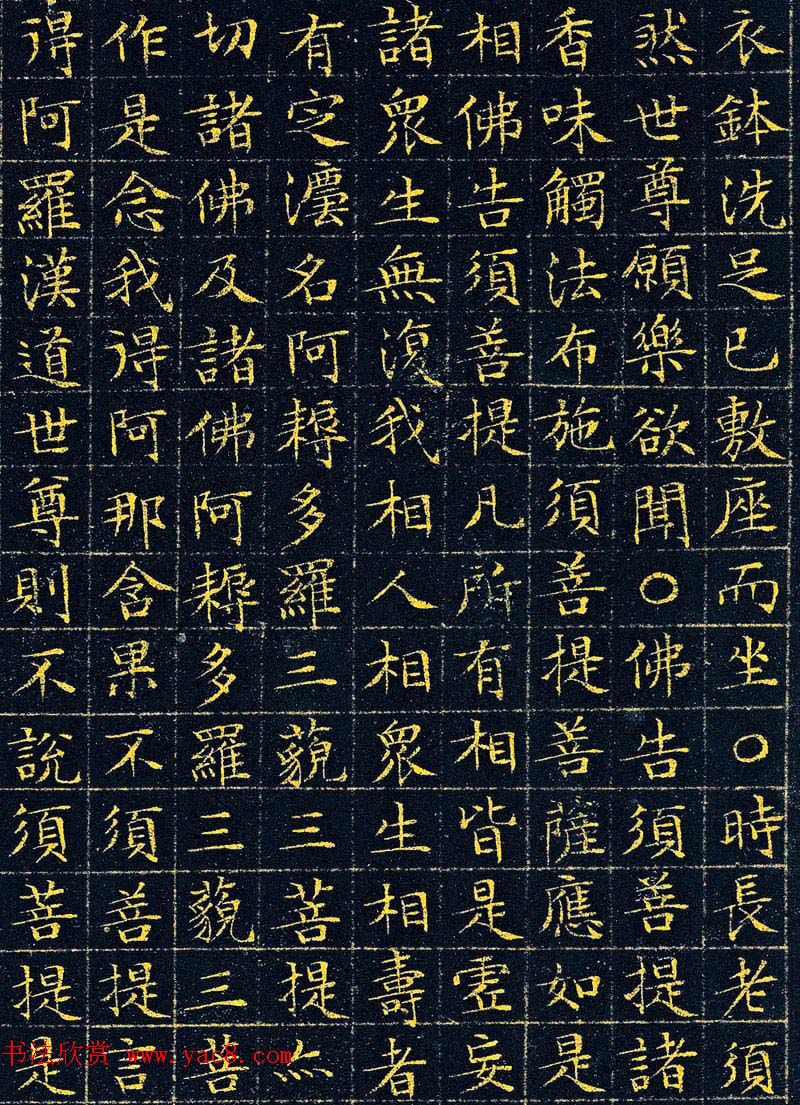 衣鉢洗足已敷座而坐○時長老須
然世尊願樂欲聞○佛告須菩提諸
香味觸法布施須菩提菩薩應如是
相佛告須菩提凡所有相皆是虛妄
諸眾生無復我相人相眾生相壽者
有定灋名阿耨多羅三藐三菩提亦
切諸佛及諸佛阿耨多羅三藐三菩
作是念我得阿那含果不須菩提言
得阿羅漢道世尊則不說須菩提是
书法欣赏 www.yac8.com